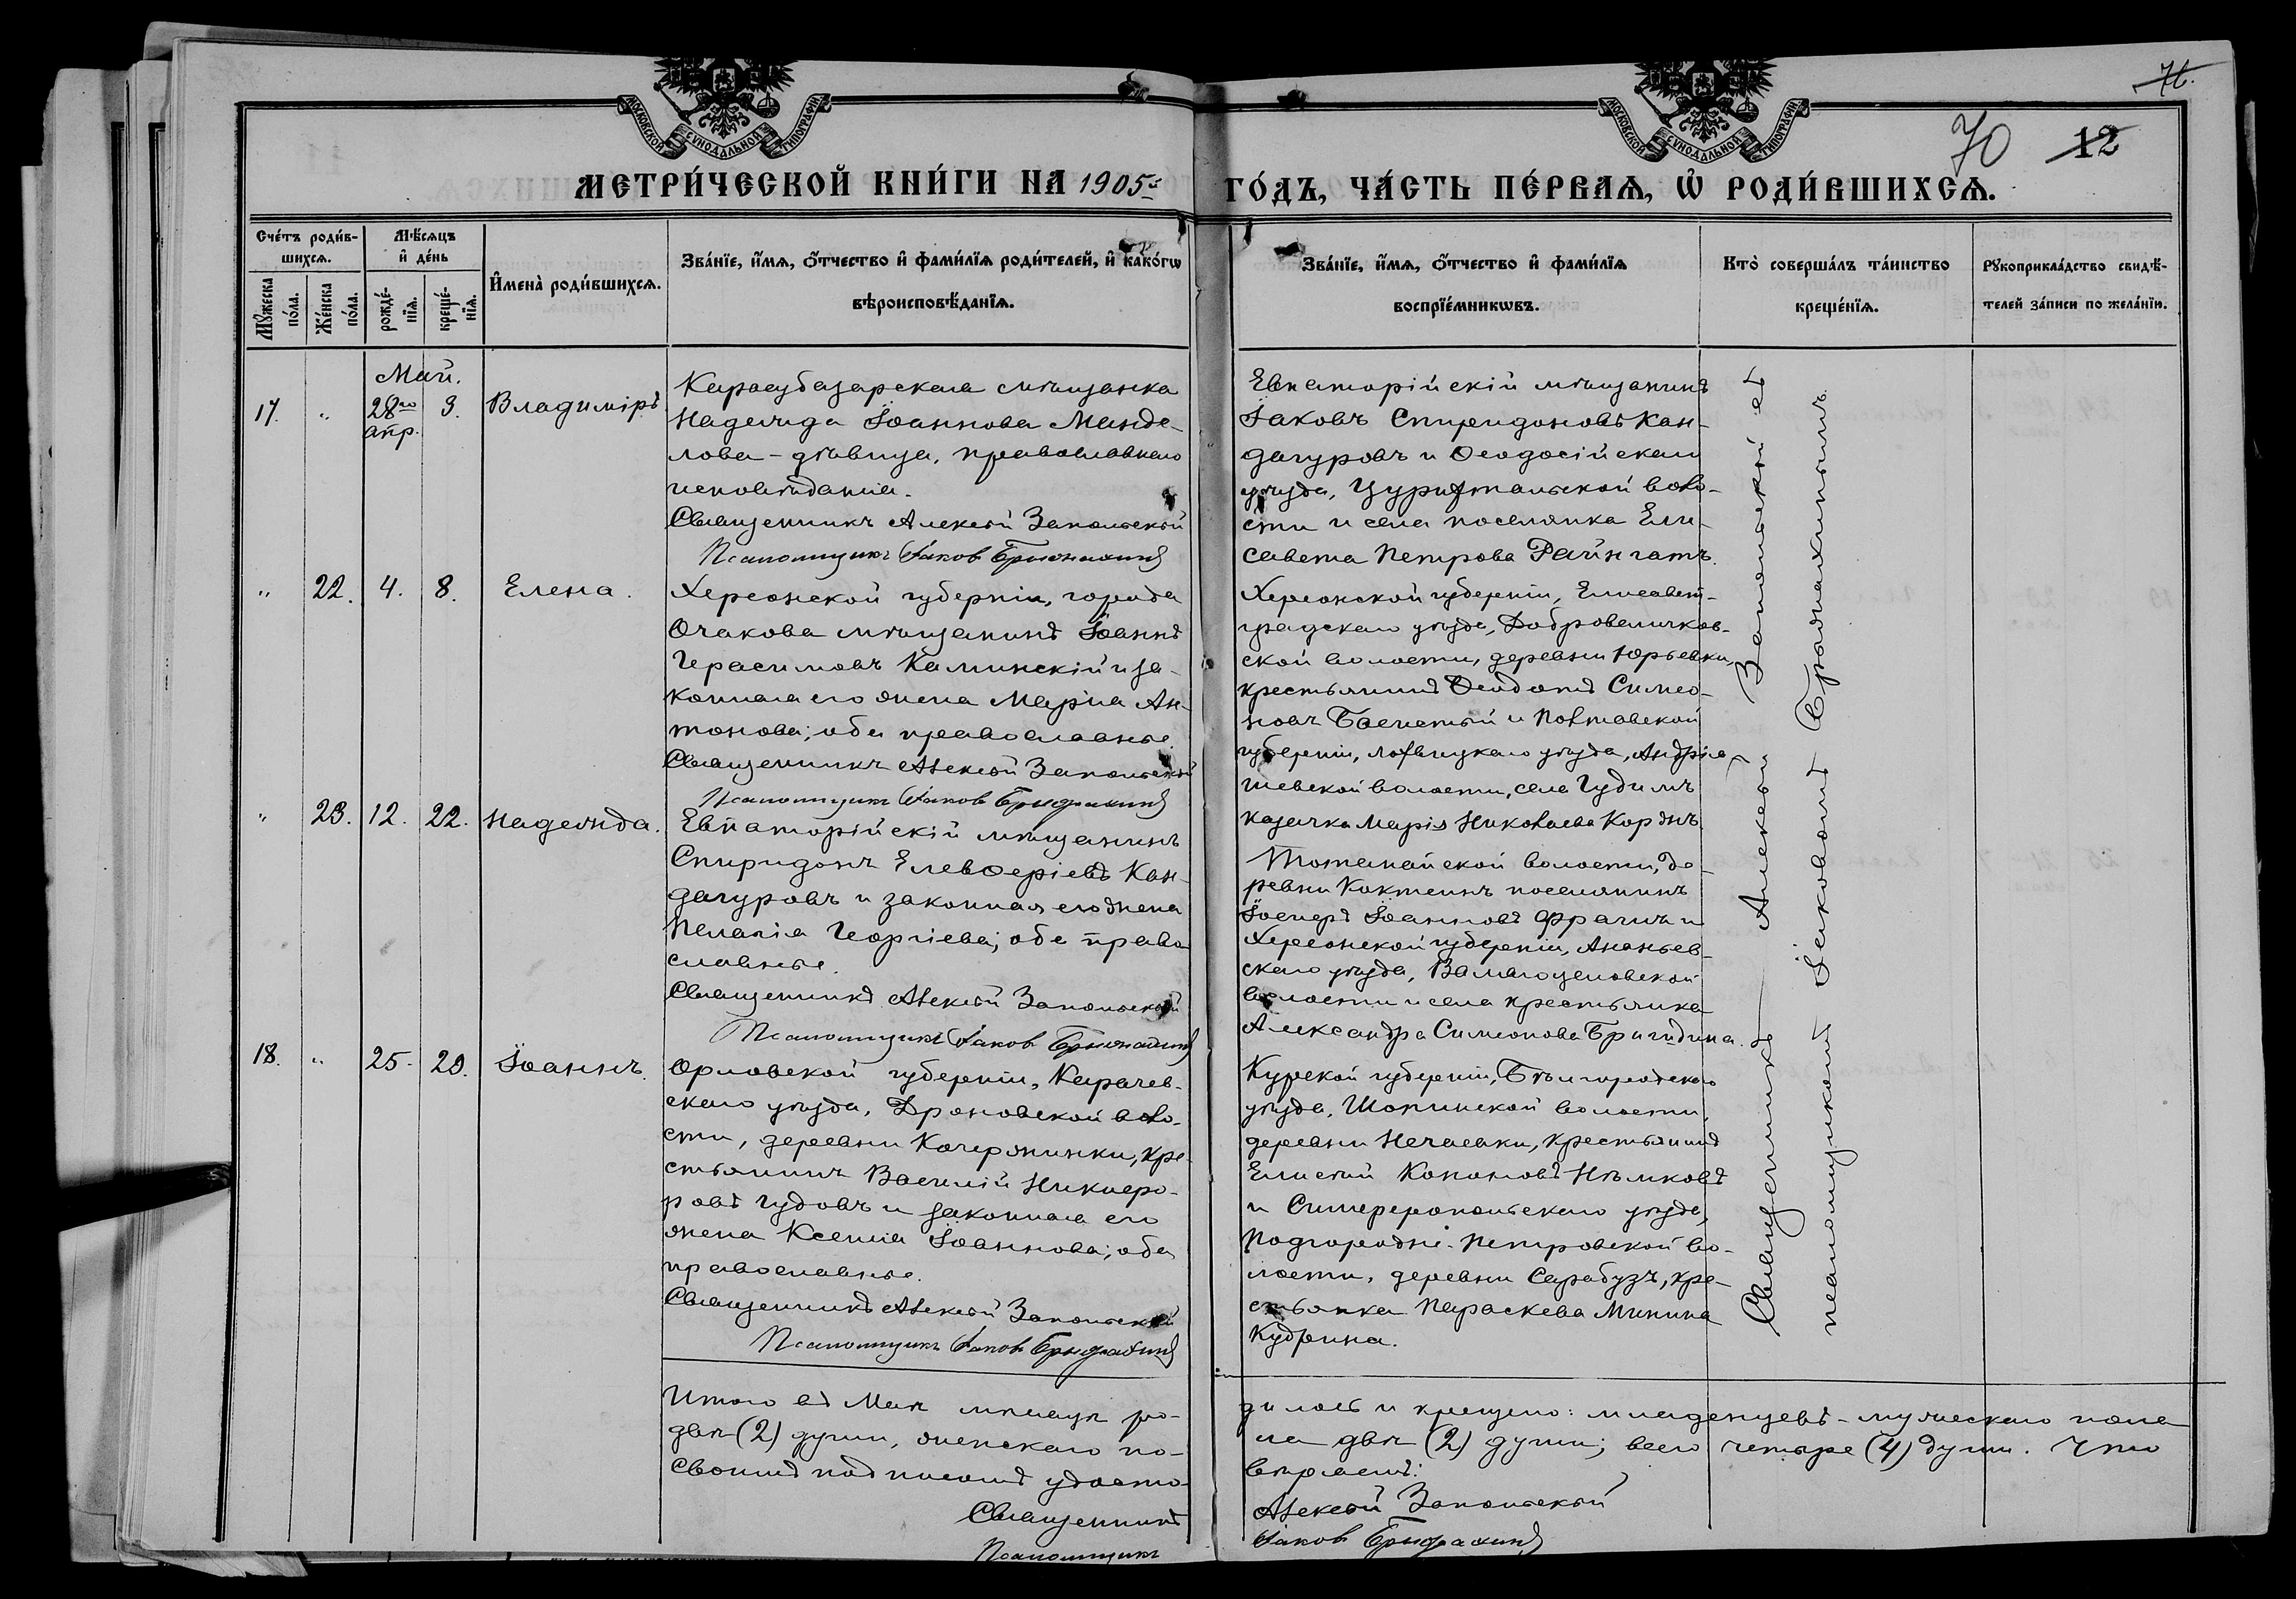 76.
70 12
МОСКОВСКОЙ СѴНОДАЛЬНОЙ ТИПОГРАФІИ
МОСКОВСКОЙ СѴНОДАЛЬНОЙ ТИПОГРАФІИ
МЕТРИ́ЧЕСКОЙ КНИ́ГИ НА 1905й ГО́ДЪ, ЧА́СТЬ ПЕ́РВАѦ, Ѡ РОДИ́ВШИХСѦ.
Сче́тъ роди́в-
шихсѧ.
Мꙋ́жеска по́ла.
Же́нска по́ла.
Мѣ́сѧцъ
и҆ де́нь
рожде́-
нїѧ.
креще́-
нїѧ.
И҆мена̀ роди́вшихсѧ.
Зва́нїе, и҆́мѧ, ѻ҆́тчество и҆ фами́лїѧ роди́телей, и҆ како́гѡ
вѣроисповѣ́данїѧ.
Зва́нїе, и҆́мѧ, ѻ҆́тчество и҆ фами́лїѧ
воспрїе́мникѡвъ.
Кто̀ соверша́лъ та́инство
креще́нїѧ.
Рꙋкоприкла́дство свидѣ́-
телей за́писи по жела́нїю.
Май.
17. " 28го апр. 3. Владиміръ
Карасубазарская мѣщанка
Надежда Іоаннова Манде-
лова - дѣвица, православнаго
исповѣданія.
Священникъ Алексѣй Запольскій
Псаломщикъ Іаковъ
Евпаторійскій мѣщанинъ
Іаковъ Спиридоновъ Кан-
дагуровъ и Ѳеодосійскаго
уѣзда, Цурихтальской воло-
сти и села поселянка Ели-
савета Петрова Райнгатъ.
" 22. 4. 8. Елена.
Херсонской губерніи, города
Очакова мѣщанинъ Іоаннъ
Герасимовъ Каминскій и за-
конная его жена Марія Ан-
тонова; оба православные.
Священникъ Алексѣй Запольскій
Псаломщикъ Іаковъ
Херсонской губерніи, Елисавет-
градскаго уѣзда, Добровеличков-
ской волости, деревни Юрьевки,
крестьянинъ Ѳеодотъ Симео-
новъ и Полтавской
губерніи, Лохвицкаго уѣзда, Андрія-
шевской волости, села Гудимъ
казачка Марія Николаева Коржъ.
" 23. 12. 22. Надежда.
Евпаторійскій мѣщанинъ
Спиридонъ Елевѳеріевъ Кан-
дагуровъ и законная его жена
Пелагія Георгіева; оба право
славные.
Священникъ Алексѣй Запольскій
Псаломщикъ Іаковъ
Тотанайской волости, де-
ревни Коктеинъ поселянинъ
Іосифъ Іоанновъ Фрачъ и
Херсонской губерніи, Ананьев-
скаго уѣзда, Валегоцуловской
волости и села крестьянка
Александра Симеонова Бригидина.
18. " 25. 29. Іоаннъ.
Орловской губерніи, Карачев-
скаго уѣзда, Дроновской воло-
сти, деревни Кочержинки, кре-
стьянинъ Василій Никифо-
ровъ Гудовъ и законная его
жена Ксенія Іоаннова; оба
православные.
Священникъ Алексѣй Запольскій
Псаломщикъ Іаковъ
Курской губерніи, Бѣлгородскаго
уѣзда, Шопинской волости,
деревни Нечаевки, крестьянинъ
Елисей Кононовъ Нѣмковъ
и Симферопольскаго уѣзда,
Подгородне-Петровской во-
лости, деревни Сарабузъ, кре-
стьянка Параскева Минина
Кудрина.
Священникъ Алексѣй Запольскій съ
псаломщикомъ Іаковомъ
Итого въ Маѣ мѣсяцѣ ро-
дилось и крещено: младенцевъ - мужескаго пола
двѣ (2) души, женскаго по-
ла двѣ (2) души; всего четыре (4) души. Что
своимъ подписомъ удосто-
вѣряемъ:
Священникъ Алексѣй Запольскій
Псаломщикъ Іаковъ